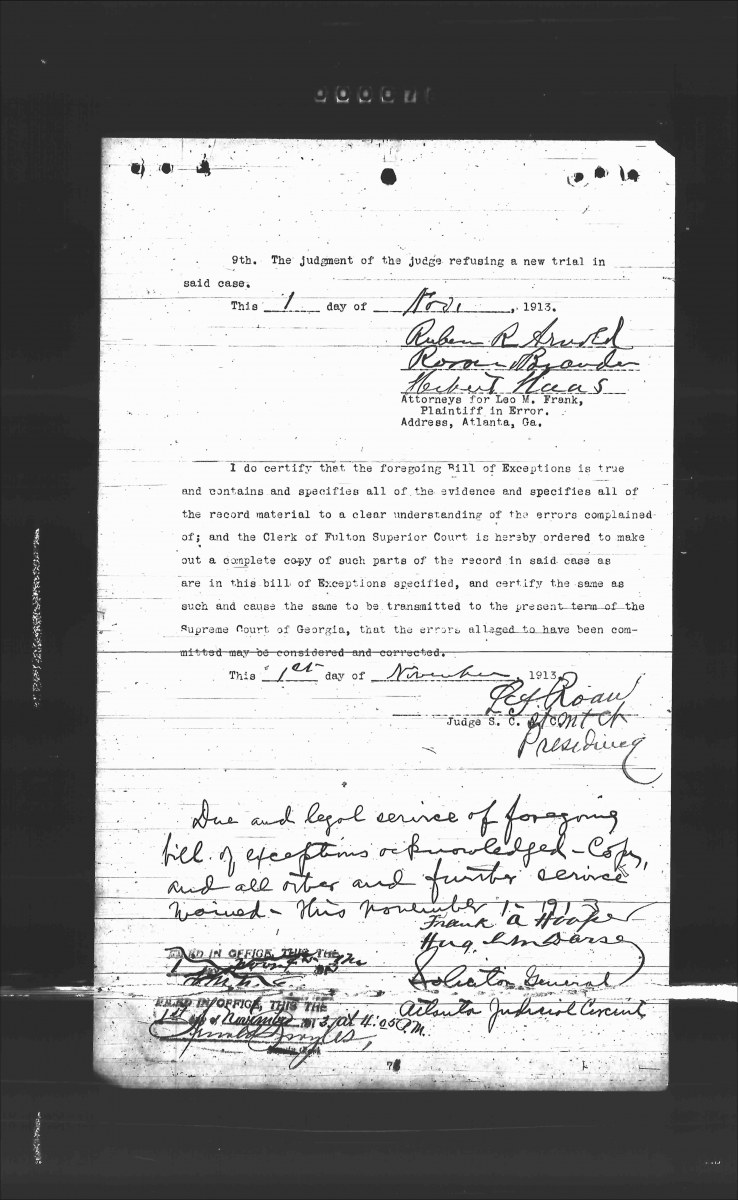 9th. The judgment of the judge refusing a new trial in
said case.
This 1 day of Nov., 1913.
Ruben R Arnold
Herbert Haas
Attorneys for Leo M. Frank,
Plaintiff in Error.
Address, Atlanta, Ga.
I do certify that the foregoing Bill of Exceptions is true
and contains and specifies all of the evidence and specifies all of
the record material to a clear understanding of the errors complained
of; and the Clerk of Fulton Superior Court is hereby ordered to make
out a complete copy of such parts of the record in said case as
are in this bill of Exceptions specified, and certify the same as
such and cause the same to be transmitted to the present term of the
Supreme Court of Georgia, that the errors alleged to have been com-
mitted may be considered and corrected.
This 1st day of November, 1913.
L. S. Roan
Judge S. C.
Presiding
Due and legal service of foregoing
bill of exceptions acknowledged - Copy,
and all other and further service
waived - This November 1 - 1913
Frank A Hooper
Hugh M Dorsey
Solicitor General
Atlanta Judicial Circuit
FILED IN OFFICE, THIS THE
FILED IN OFFICE, THIS THE
1st day of November 1913, at 4:05 P.M.